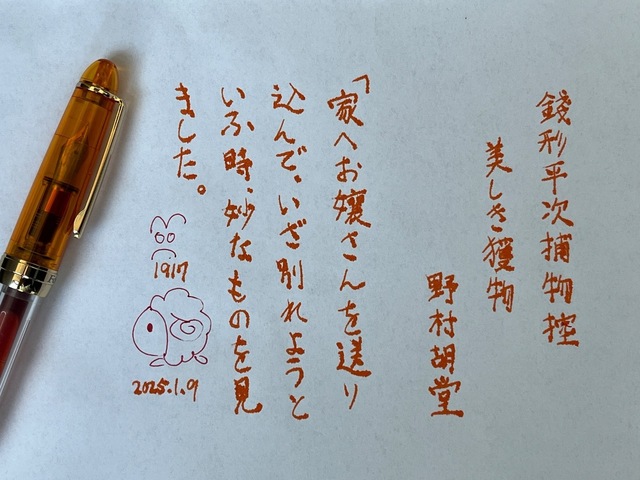 銭形平次捕物控
美しき獲物
野村胡堂
「家へお嬢さんを送り
込んで、いざ別れようと
いふ時、妙なものを見
ました。
1917
2025.1.9